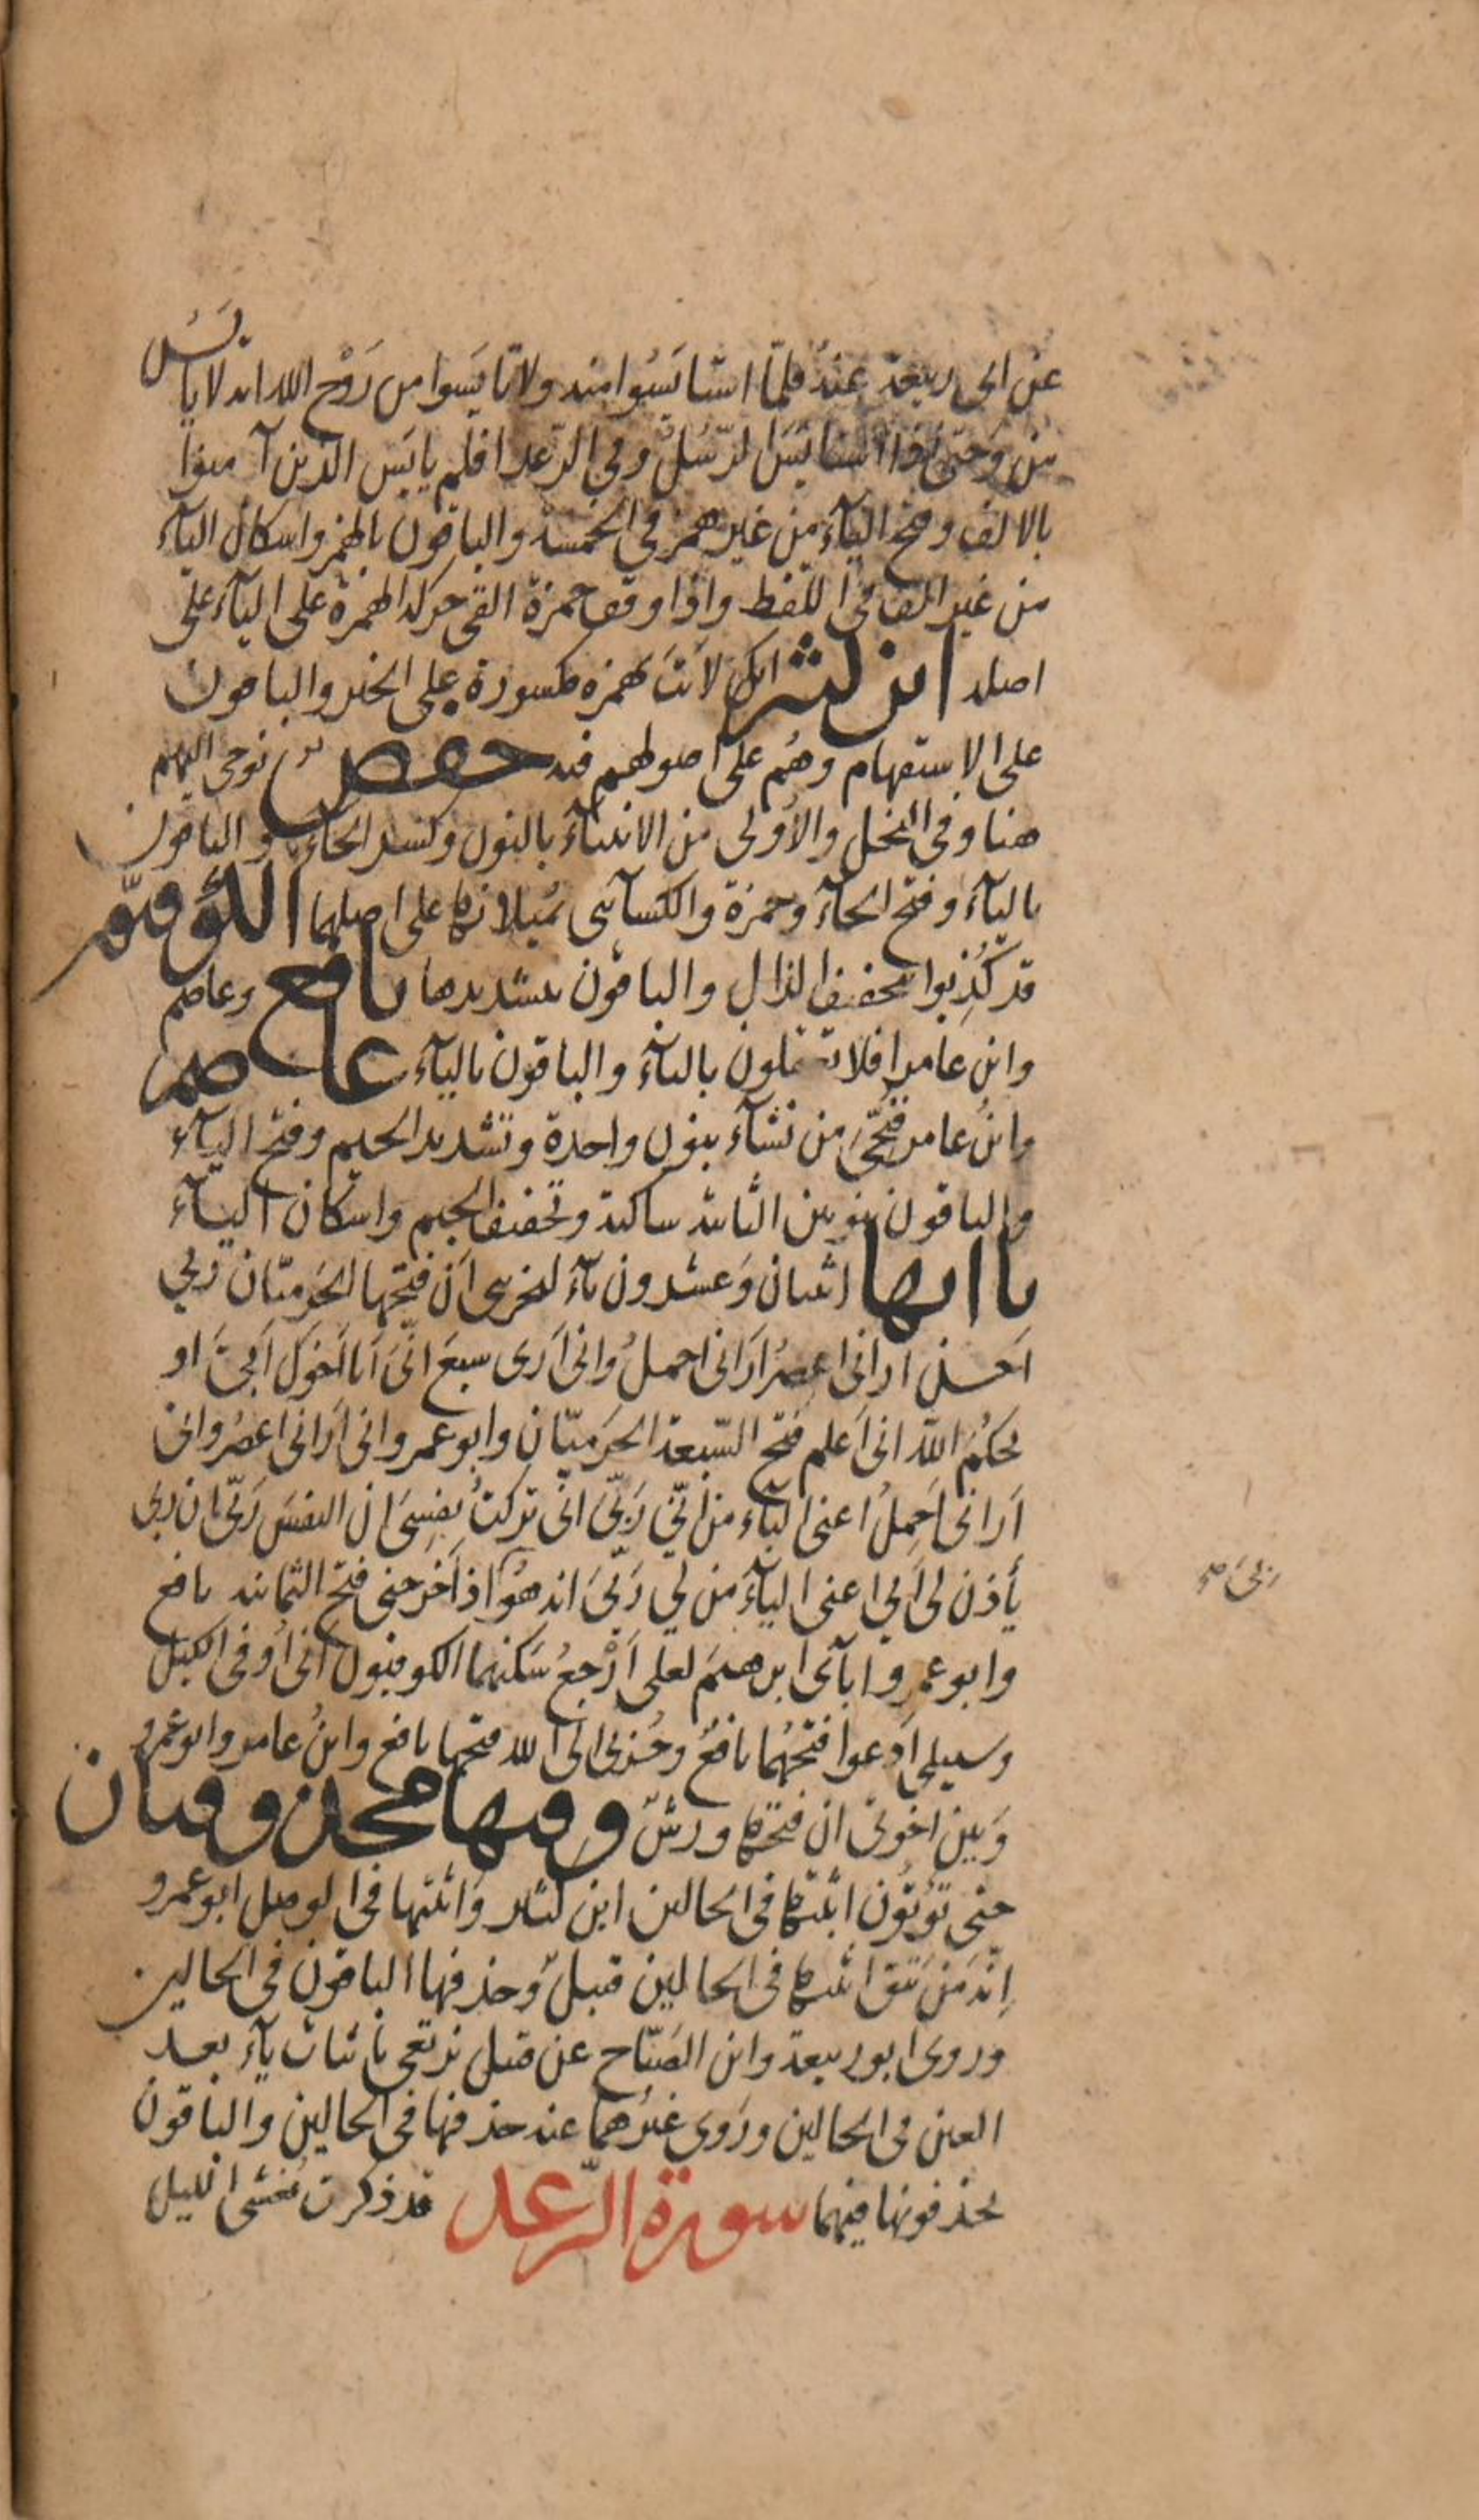 عن ابى ربيعة عنه فلمّا استايَسُوا منه ولا تايَسوا من رَوْح الله انه لا يايَسُ
من وحتى اذا استايَسَ الرّسُلُ وفى الرّعد افلم يايَس الذين آمنوا
بالالف وفتح اليآء من غير همز فى الخمسة والباقون بالهمز واسكان اليآء
من غير الف فى اللّفظ واذا وقف حمزة القى حركة الهمزة على اليآء على
اصله ابن كثير ائنك لاَنتَ بهمزة مكسورة على الخبر والباقون
على الاستفهام وهُم على اصولهم فيه حفص نوحى اليهم
هنا وفى النحل والأولى من الانبيآء بالنون وكسر الحآء والباقون
باليآء وفتح الحآء وحمزة والكسآئى يُميلانها على اصلهما الكوفيّون
قد كُذِبوا بتخفيف الذال والباقون بتشديدها نافع وعاصم
وابن عامر افلا تعقلون بالتآء والباقون باليآء عاصم
وابنُ عامر فنُجّىَ من نشآء بنون واحدة وتشديد الجيم وفتح اليآء
والباقون بنونين الثانية ساكنة وتخفيف الجيم واسكان اليآء
ياءاتها اثنان وَعشرون يآء ليحزننى اَن فتحها الحَرميّان ربى
اَحسن ارانى اعصرُ اَرَانى احملُ وانى اَرَى سبعَ انّىَ اَنا اَخوك اَبىَ او
يحكُمَ اللّه انى اَعلم فتح السّبعة الحَرَميّان وابو عمرو انى اَرَانى اعصُر وانى
اَرَانى اَحمِلُ اعنى اليآء من انّى رَبّىَ انّى تركتُ نفسِىَ ان النفسَ رَبّى ان ربى
يأذن لى اَبى اعنى اليآءَ من لي رَبّىَ انه هُوَ اذ اَخرجنى فتح الثمانية نافع
وابو عمرو ابآئى ابرهيمَ لعلى اَرْجعُ سَكنهما الكوفيون انى اُوفى الكيل
وسبيلى اَدعوا فتحهُما نافعٌ وحُزنى الى الله فتحها نافع وابنُ عامر وابو عمرو
وَبين اخوتى ان فتحها ورشٌ وفيها محذوفتان
حتى تؤتُون اثبتها فى الحالين ابن كثير وَاثبتها فى الوصل ابو عمرو
اِنّه مَن يَتق اثبتها فى الحالين قنبلٌ وحذفها الباقون فى الحالين
وروى ابو ربيعة وابن الصَبّاح عن قنبل نرتعى باثبات يآء بعد
العين فى الحالين ورَوى غيرُهما عنه حذفها فى الحالين والباقون
يحذفونها فيهما سورة الرّعد قد ذكرت يُغشى الليل
ربىَ صح